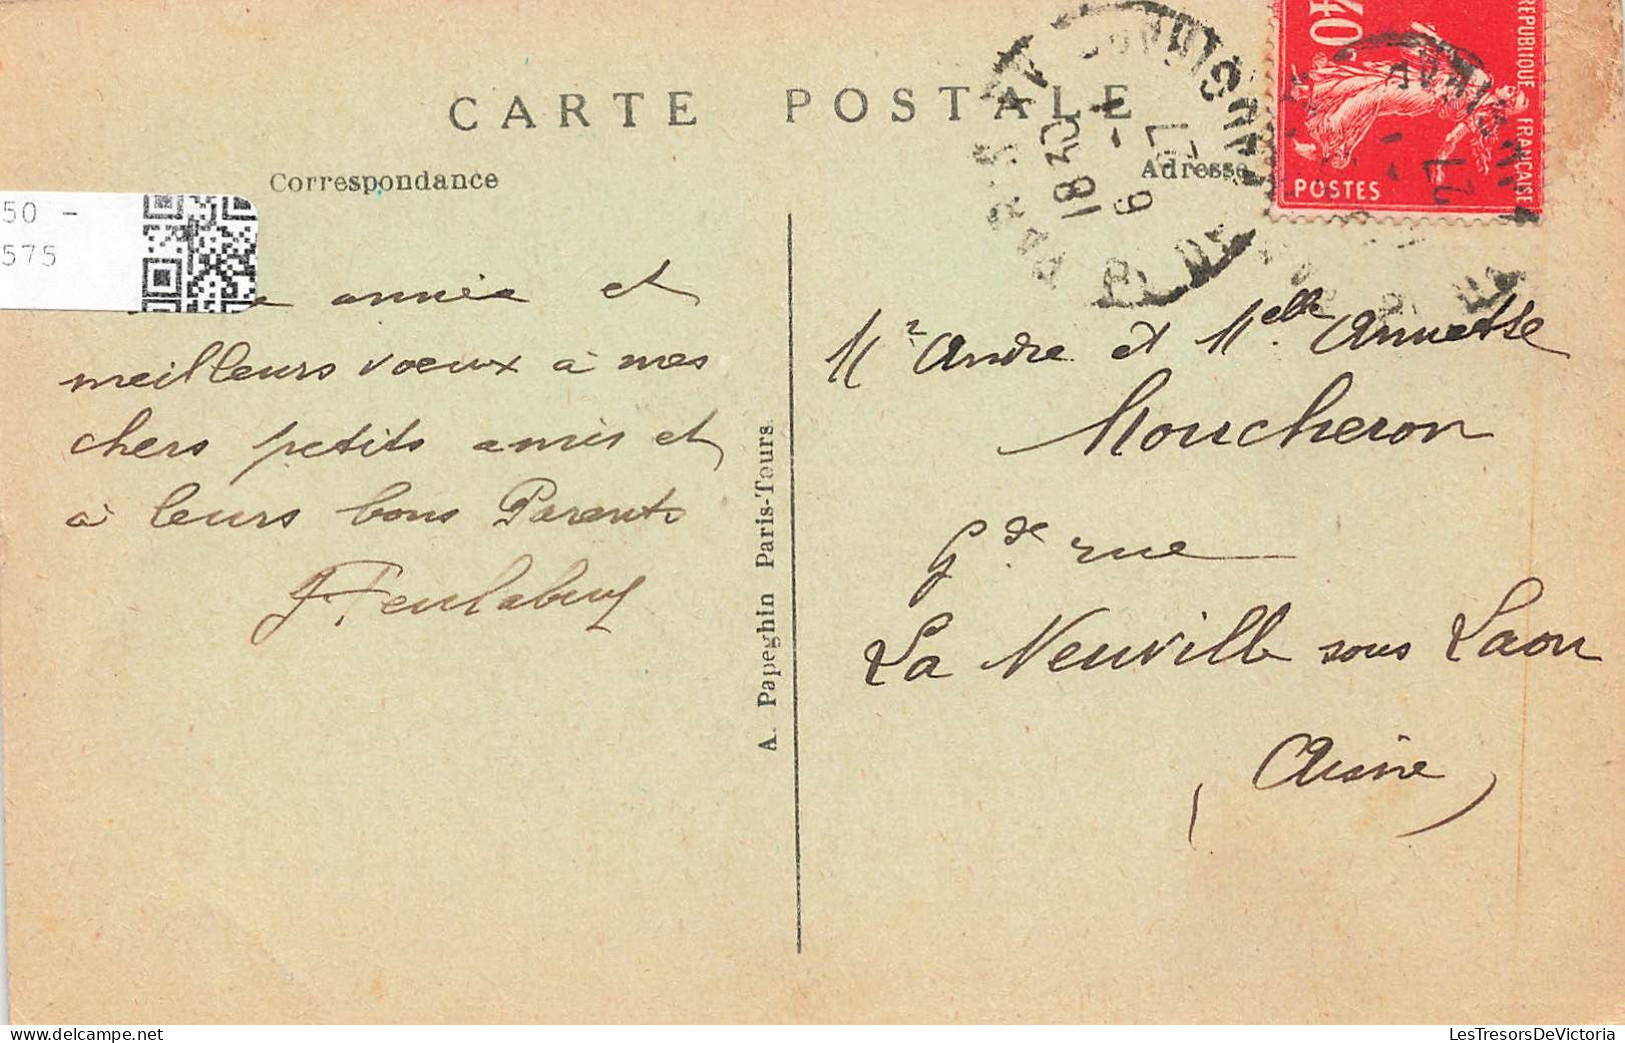 CARTE POSTALE
Correspondance
Adresse
50 -
575
REPUBLIQUE FRANÇAISE
40
POSTES
18 30
6 - 1
27
année et
meilleurs voeux à mes
chers petits amis et
à leurs bons Parents
A. Papeghin Paris-Tours.
Mr André et Melle Annette
Moucheron
Gde rue
La Neuville sous Laon
(Aisne)
LesTresorsDeVictoria